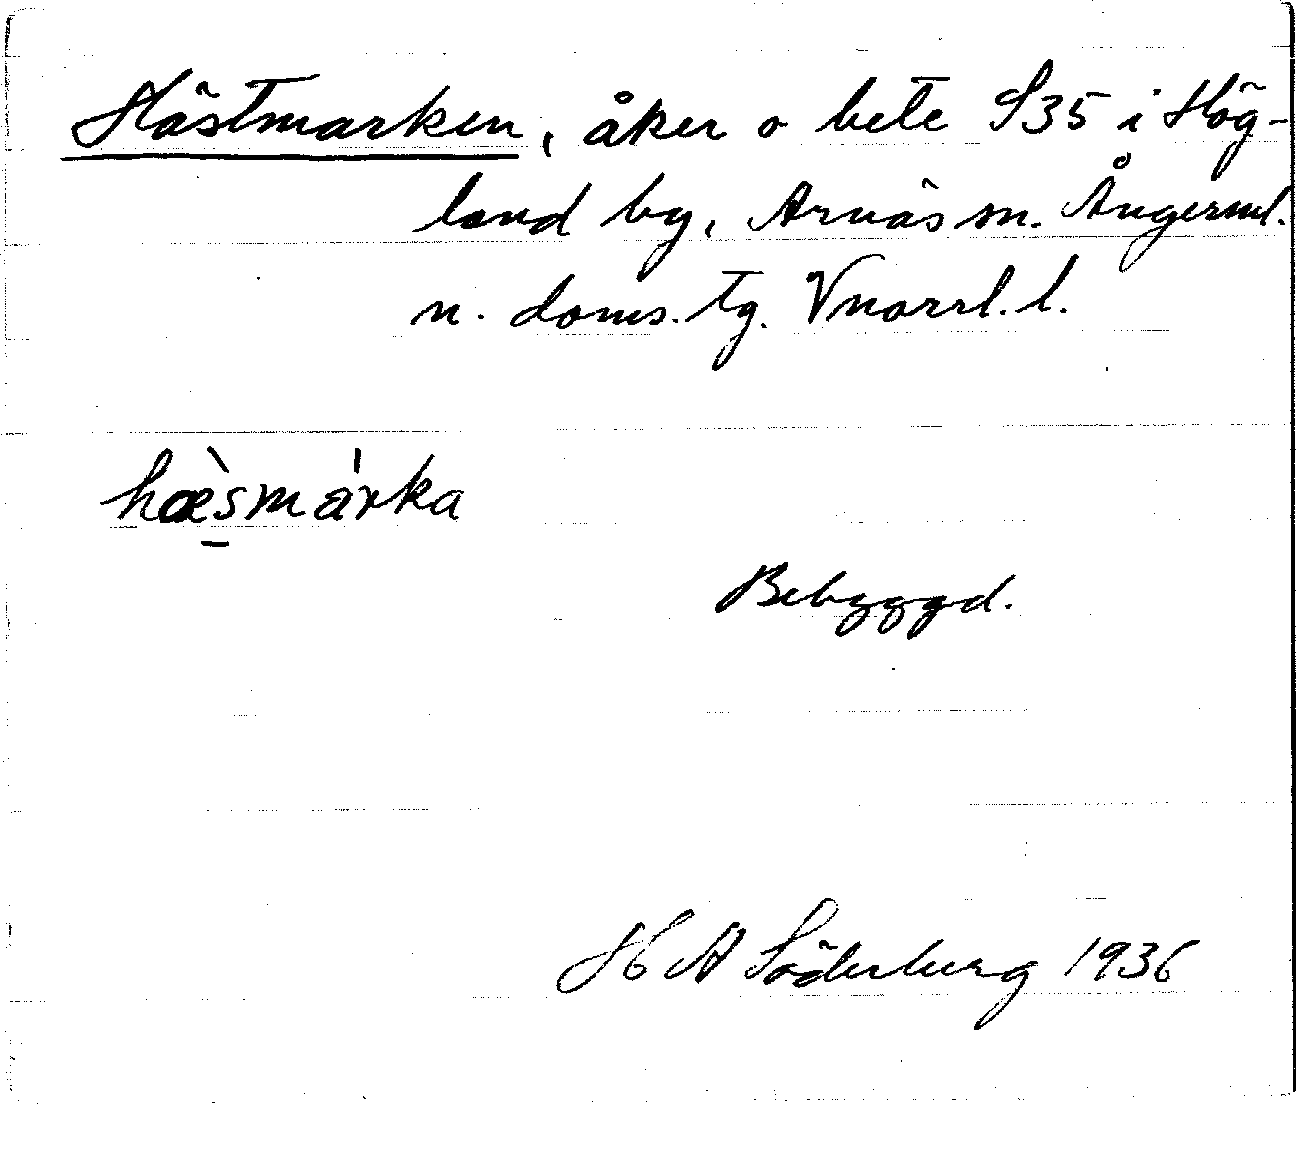 Hästmarken, åker o bete S35 i Hög-
land by, Arnäs sn. Ångerml.
n. doms. tg. Vnorrl. l.
hæ̀smárka
Bebyggd.
H A Söderberg 1936